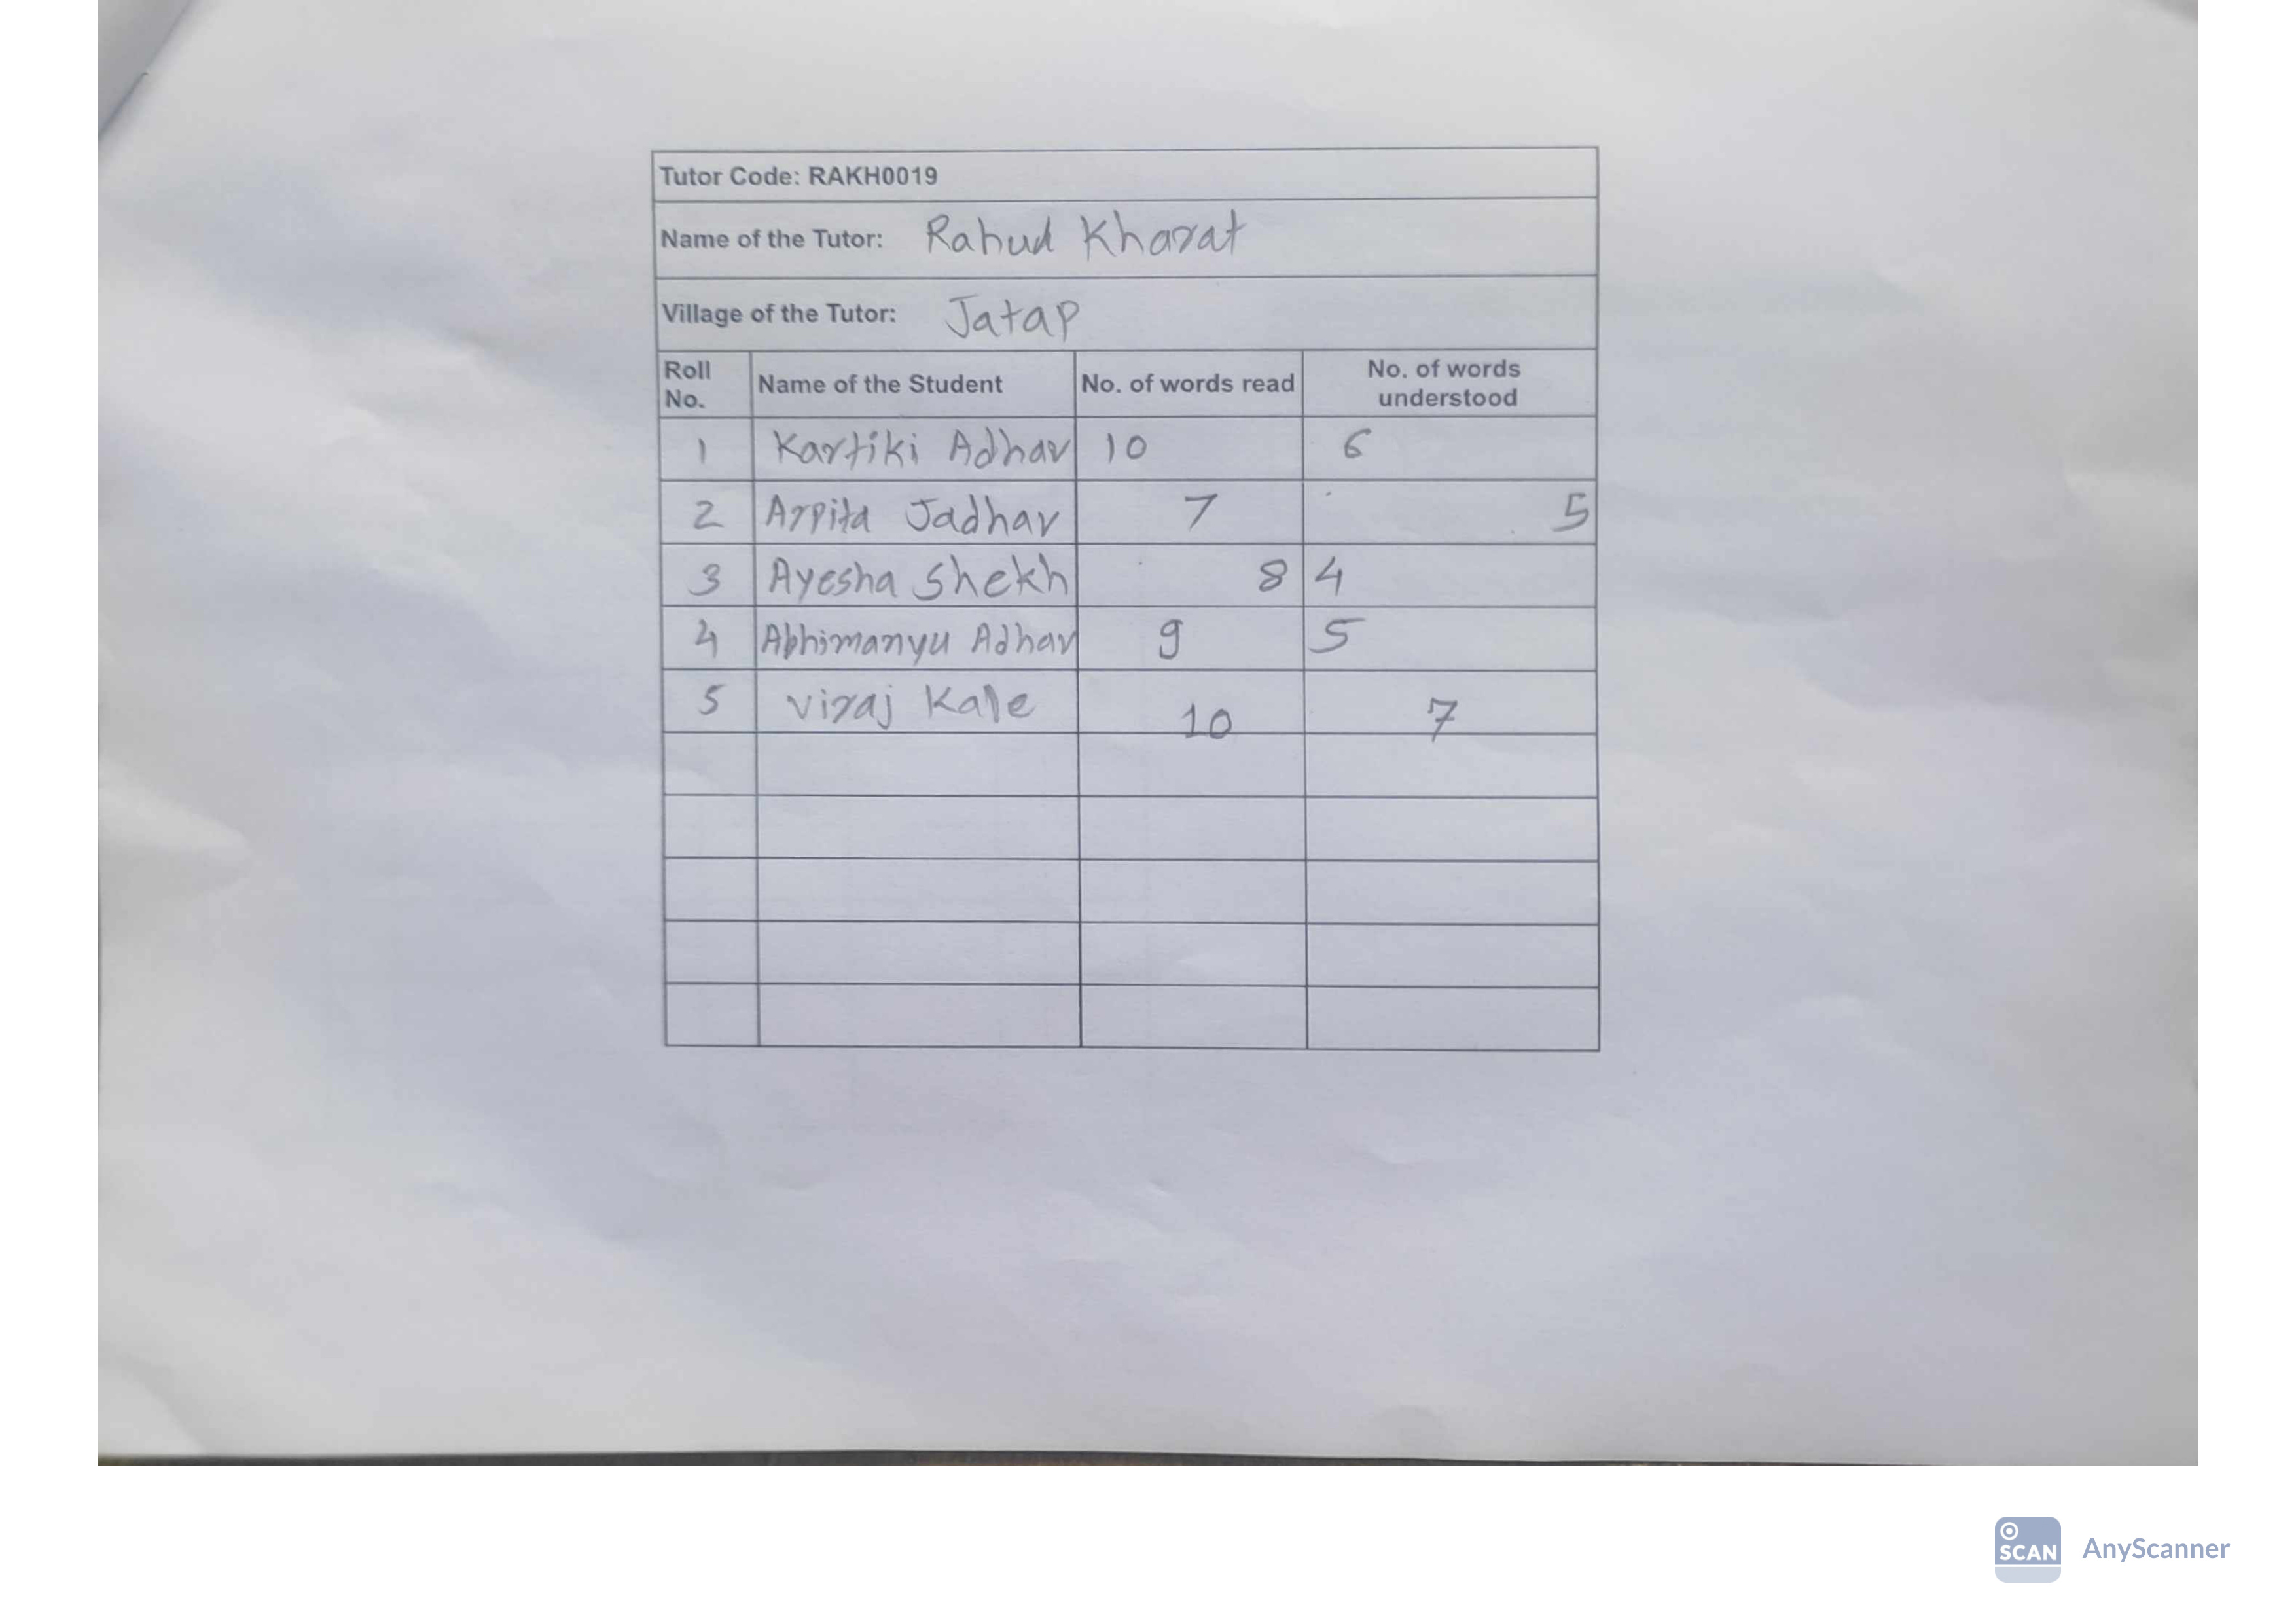 Tutor Code: RAKH0019
Name of the Tutor: Rahud Kharat
Village of the Tutor: Jatap
Roll No. Name of the Student No. of words read No. of words understood
1 Kartiki Adhav 10 6
2 Arpita Jadhav 7 5
3 Ayesha Shekh 8 4
4 Abhimanyu Adhav 9 5
5 viraj Kale 10 7
SCAN AnyScanner